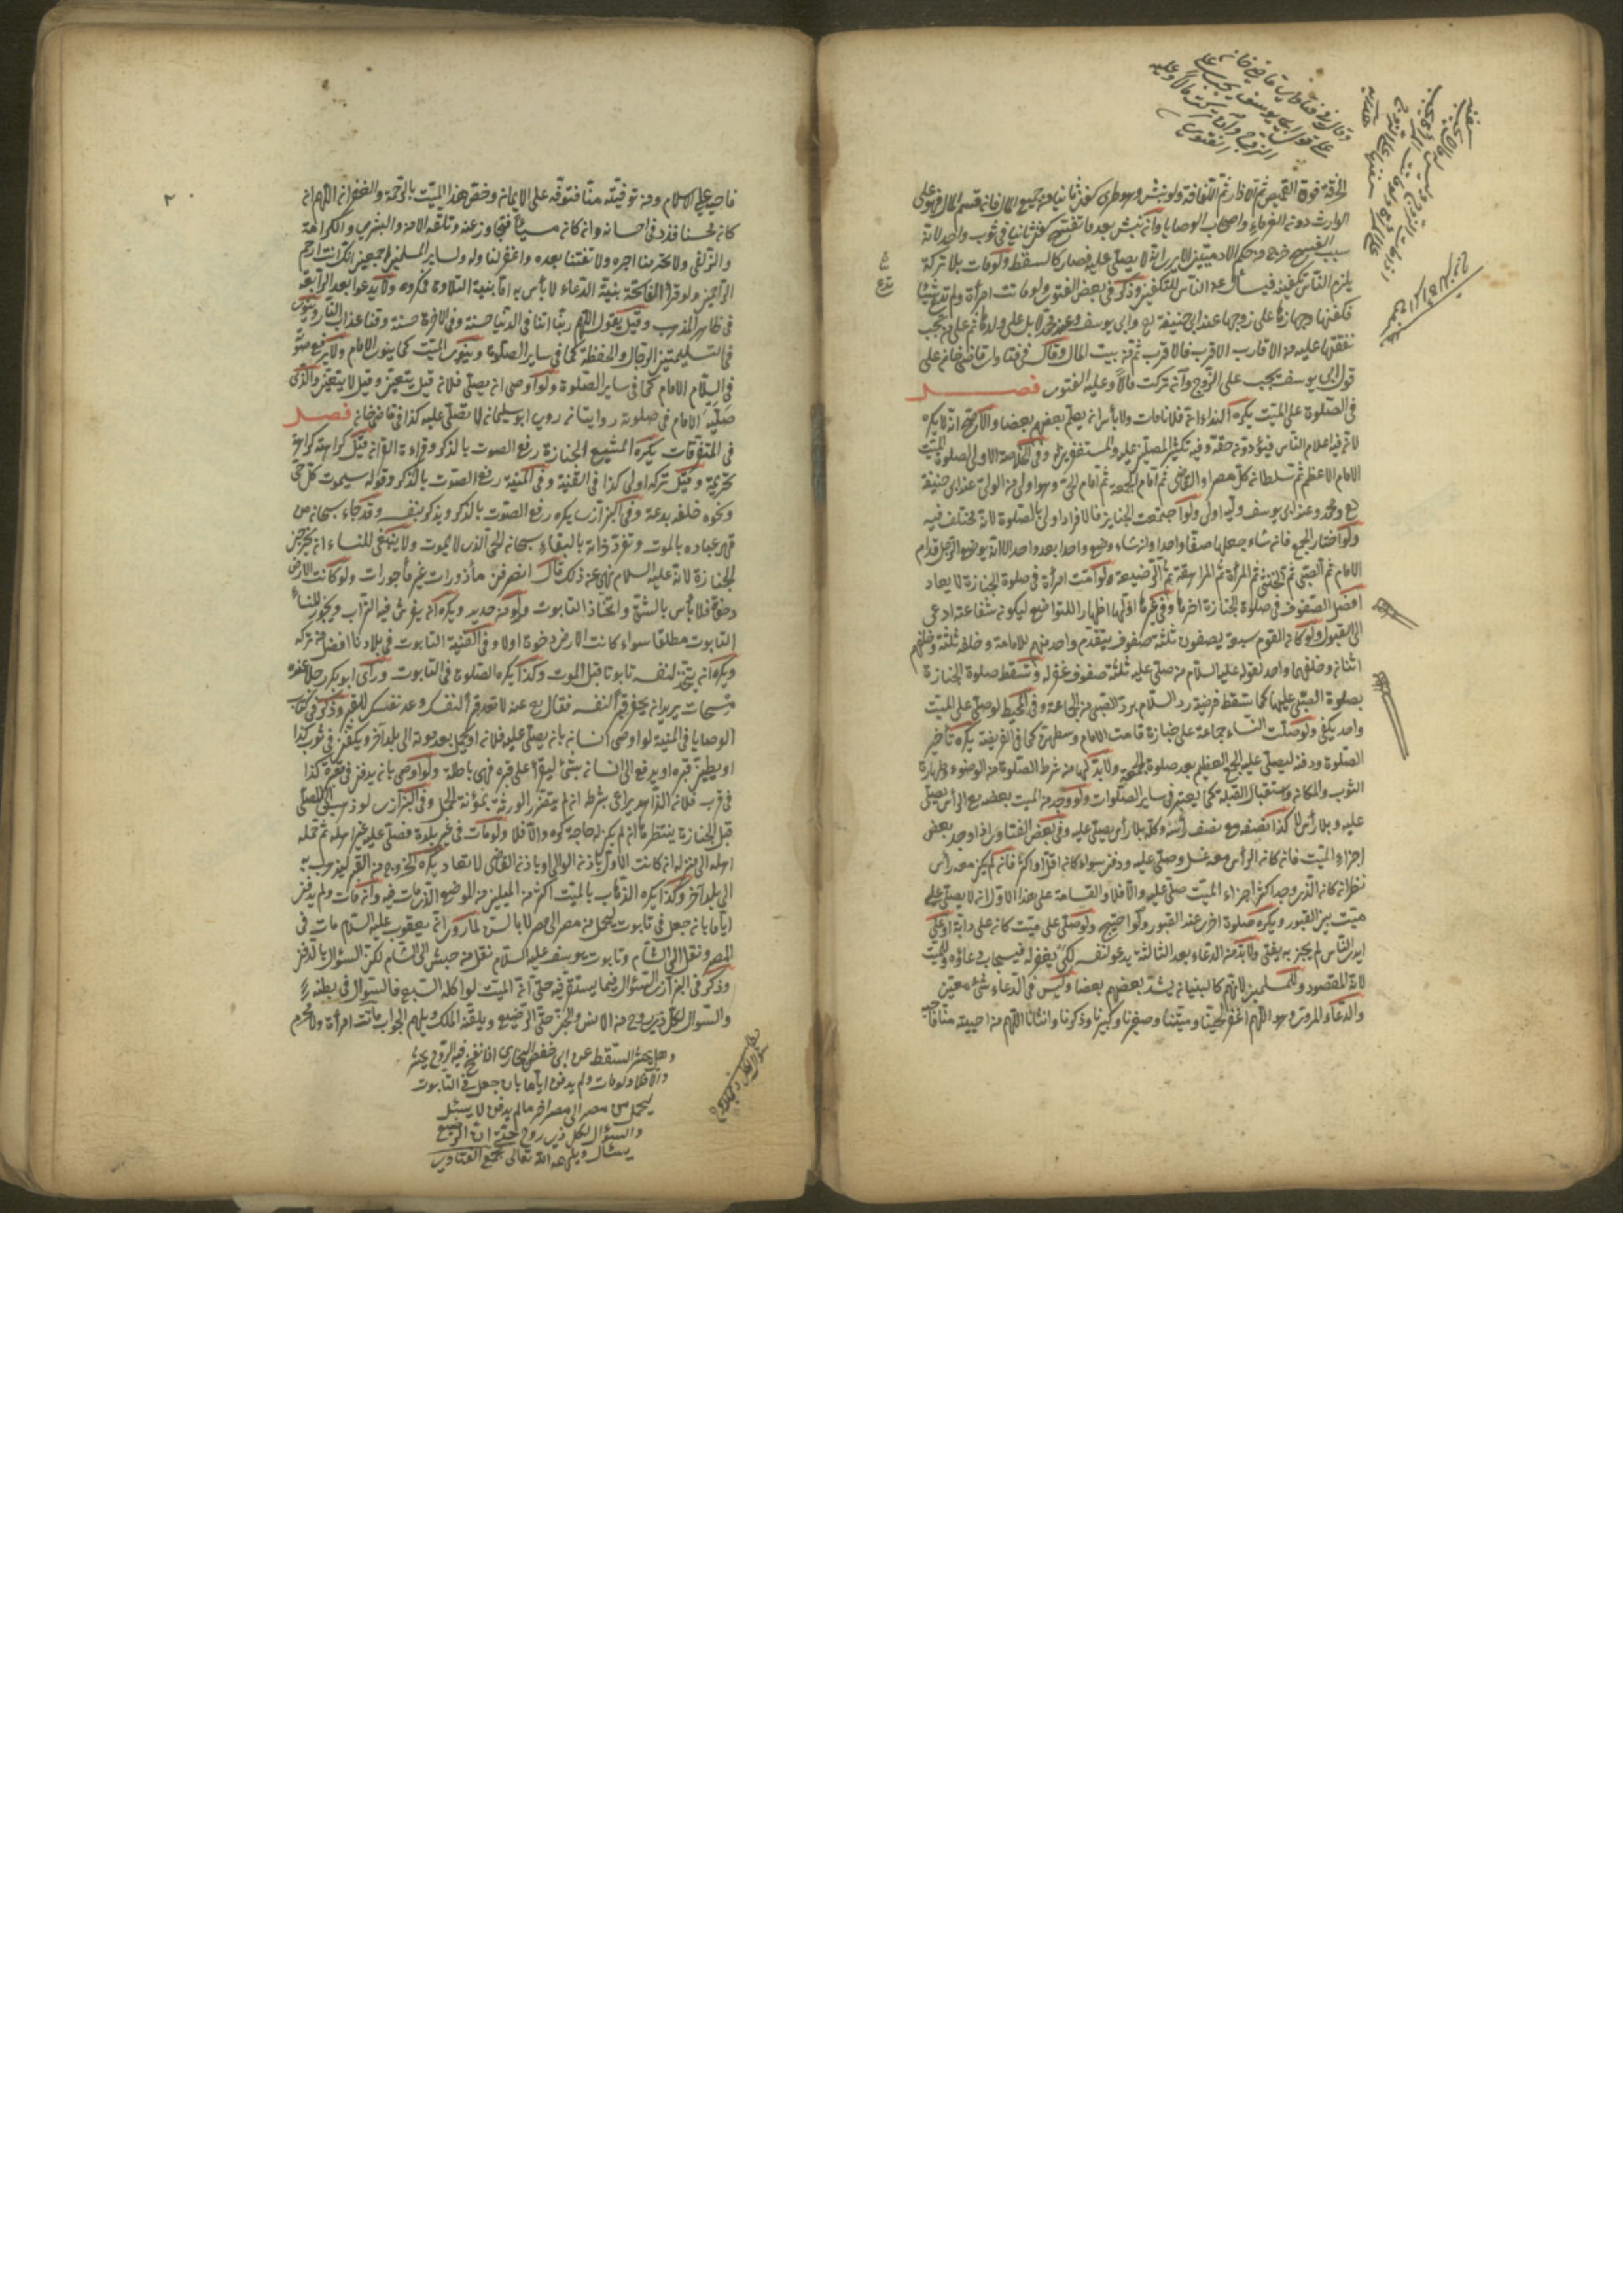 الخرقة فوق القميص ثم الازار ثم اللفافة ولو نبش وهو طري كفن ثانيا من جميع المال فان قسم المال فهو على
الوارث دون الغرماء واصحاب الوصايا وان نبش بعد ما تفسخ كفن ثانيا في ثوب واحد لانه
سبب التفسخ خرج من حكم الادميين الا يرى انه لا يصلى عليه فصار كالسقط ولو مات بلا تركة
يلزم الناس تكفينه فيسأل من الناس للتكفين وذكر في بعض الفتوى ولو ماتت امرأة ولم تدع شيئا
فكفنها وجهازها على زوجها عند ابي حنيفة رح وابي يوسف وعند محمد لا بل على ولدها ثم على من تجب
نفقتها عليه من الاقارب الاقرب فالاقرب ثم من بيت المال وقال في فتاوى قاضي خان على
قول ابي يوسف يجب على الزوج وان تركت مالا وعليه الفتوى فصل
في الصلوة على الميت يكره النداء ولا بأس ان يعلم بعضهم بعضا والاصح انه لا يكره
لان فيه اعلام الناس فيؤدون حقه وفيه تكثير المصلين عليه والمستغفرين له وفي الخلاصة الاولى الصلوة الميت
الامام الاعظم ثم سلطان كل مصر والقاضي ثم امام الجمعة ثم امام الحي وهو اولى من الولي عند ابي حنيفة
رح ومحمد وعند ابي يوسف وليه اولى ولو اجتمعت الجنايز فالافراد اولى بالصلوة لانه مختلف فيه
ولو اختار الجمع فان شاء جعلها صفا واحدا وان شاء وضع واحدا بعد واحد الا انه يوضع الرجل قدام
الامام ثم الصبي ثم الخنثى ثم المرأة ثم المراهقة ثم الرضيعة ولو امت امرأة في صلوة الجنازة لا يعاد
افضل الصفوف في صلوة الجنازة اخرها وفي غيرها اولها اظهارا للتواضع ليكون شفاعته ادعى
الى القبول ولو كان القوم سبعة يصفون ثلثة صفوف يتقدم واحد منهم للامامة وخلفه ثلثة وخلفهم
اثنان وخلفهما واحد لقوله عليه السلام من صلى عليه ثلثة صفوف غفر له وتسقط صلوة الجنازة
بصلوة الصبي عليها كما تسقط فرضية رد السلام برد الصبي من الجماعة وفي المحيط لو صلى على الميت
واحد يكفي ولو صلت النساء جماعة على جنازة قامت الامام وسطهن كما في الفريضة يكره تأخير
الصلوة ودفنه ليصلي عليه الجمع العظيم بعد صلوة الجمعة ولا بد لها من شرط الصلوة من الوضوء وطهارة
الثوب والمكان واستقبال القبلة كما يعتبر في ساير الصلوات ولو وجد من الميت بعضه مع الرأس يصلى
عليه وبلا رأس لا كذا نصفه مع نصف رأسه وكله بلا رأس يصلى عليه وفي بعض الفتاوى اذا وجد بعض
اجزاء الميت فان كان الرأس معه غسل وصلى عليه ودفن سواء كان اقل او اكثر فان لم يكن معه رأس
نظر ان كان الذي وجد اكثر اجزاء الميت صلى عليه والا فلا والقسامة على هذا الا لانه لا يصلى على
ميت بين القبور ويكره صلوة اخرى عند القبور ولو صلى على ميت كان على دابة او على
ايدي الناس لم يجز به يفتى ولا بد من الدعاء بعد الثالثة يدعو لنفسه لكي يغفر له فيستجاب دعاؤه وللميت
لانه المقصود وللمسلمين لانهم كالبنيان يشد بعضهم بعضا وليس في الدعاء شئ معين
والدعاء المروي هو اللهم اغفر لحينا وميتنا وصغيرنا وكبيرنا وذكرنا وانثانا اللهم من احييته منا فاحيه
وقال في فتاوى قاضي خان
على قول ابي يوسف يجب على
الزوج وان تركت مالا وعليه
الفتوى
٢
فاحيه على الاسلام ومن توفيته منا فتوفه على الايمان وخص هذا الميت بالرحمة والغفران اللهم ان
كان محسنا فزد في احسانه وان كان مسيئا فتجاوز عنه وتلقه الامن والبشرى والكرامة
والزلفى ولا تحرمنا اجره ولا تفتنا بعده واغفر لنا وله ولساير المسلمين اجمعين انك انت ارحم
الراحمين ولو قرأ الفاتحة بنية الدعاء لا بأس به اما بنية التلاوة مكروه ولا يدعوا بعد الرابعة
في ظاهر المذهب وقيل يقول اللهم ربنا اتنا في الدنيا حسنة وفي الاخرة حسنة وقنا عذاب النار وينوى
في التسليمتين الرجال والحفظة كما في ساير الصلوة وينوى الميت كما ينوى الامام ولا يرفع صوته
في السلام الامام كما في ساير الصلوة ولو اوصى ان يصلي فلان قيل يتعين وقيل لا يتعين والذي
صليه الامام في صلوته روايتان روى ابو سليمان لا تصلى عليه كذا في قاضي خان فصل
في المتفرقات يكره لمشيع الجنازة رفع الصوت بالذكر وقراءة القرآن قيل كراهة
تحريمة وقيل تركه اولى كذا في القنية وفي المنية رفع الصوت بالذكر وقوله سيموت كل حي
ونحوه خلفه بدعة وفي البزازى يكره رفع الصوت بالذكر ويذكر بنفسه وقد جاء سبحان من
قهر عباده بالموت وتفرد ذاته بالبقاء سبحان الحي الذي لا يموت ولا ينبغي للنساء ان يخرجن
الجنازة لانه عليه السلام نهى عن ذلك قال انصرفن مأذورات غير مأجورات ولو كانت الارض
رخوة فلا بأس بالشق واتخاذ التابوت ولو من حديد ويكره ان يفرش فيه التراب ويجوز للنساء
التابوت مطلقا سواء كانت الارض رخوة اولا وفي القنية التابوت في بلادنا افضل من تركه
ويكره ان يتخذ لنفسه تابوتا قبل الموت وكذا يكره الصلوة في التابوت ورأى ابو بكر رجلا عنده
مسحات يريد ان يحفر قبر لنفسه فقال رح عنه لا تعد قبر لنفسك وعد نفسك للقبر وذكر في كتاب
الوصايا في المنية لو اوصى انسان بان يصلى عليه فلان او يحمل بعد موته الى بلد اخر ويكفن في ثوب كذا
او يطين قبره او يدفع الى انسان بشئ ليقرأ على قبره فهى باطلة ولو اوصى بان يدفن في مقبرة كذا
في قرب فلان الزاهد يراعى شرطه ان لم يتضرر الورثة بمؤنة الحمل وفي البزازى لو ذهب الى المصلى
قبل الجنازة ينتظرها ان لم يكن له حاجة كوه والا فلا ولو مات في غير بلده فصلى عليه غير اهله ثم حمله
اهله الى منزله ان كانت الاول باذن الوالي او باذن القاضي لا تعاد يكره الخروج من القبر ليذهب به
الى بلد آخر وكذا يكره الذهاب بالميت اكثر من الميلين من الموضع الذي مات فيه وان مات ولم يدفن
اياما بان جعل في تابوت ليحمل من مصر الى مصر لا بأس لما روى انه يعقوب عليه السلام مات في
المصر ونقل الى الشام وتابوت يوسف عليه السلام نقل من حبش الى الشام لكن السؤال بالدفن
وذكر في البزازى السؤال فيما يستقر فيه حتى ان الميت لو اكله السبع فالسؤال في بطنه
والسؤال لكل ذي روح من الانس والجن حتى الرضيع ويلقنه الملك ويلهم الجواب ماتت امرأة ولا محرم
وهل يحشر السقط عن ابي حفص البخاري اذا نفخ فيه الروح يحشر
والا فلا ولو مات ولم يدفن اياما بان جعل في التابوت
ليحمل من مصر الى مصر اخر ما لم يدفن لا يسئل
والسؤال لكل ذي روح حتى ان الرضيع
يسئل ويلهمه الله تعالى مجمع الفتاوى